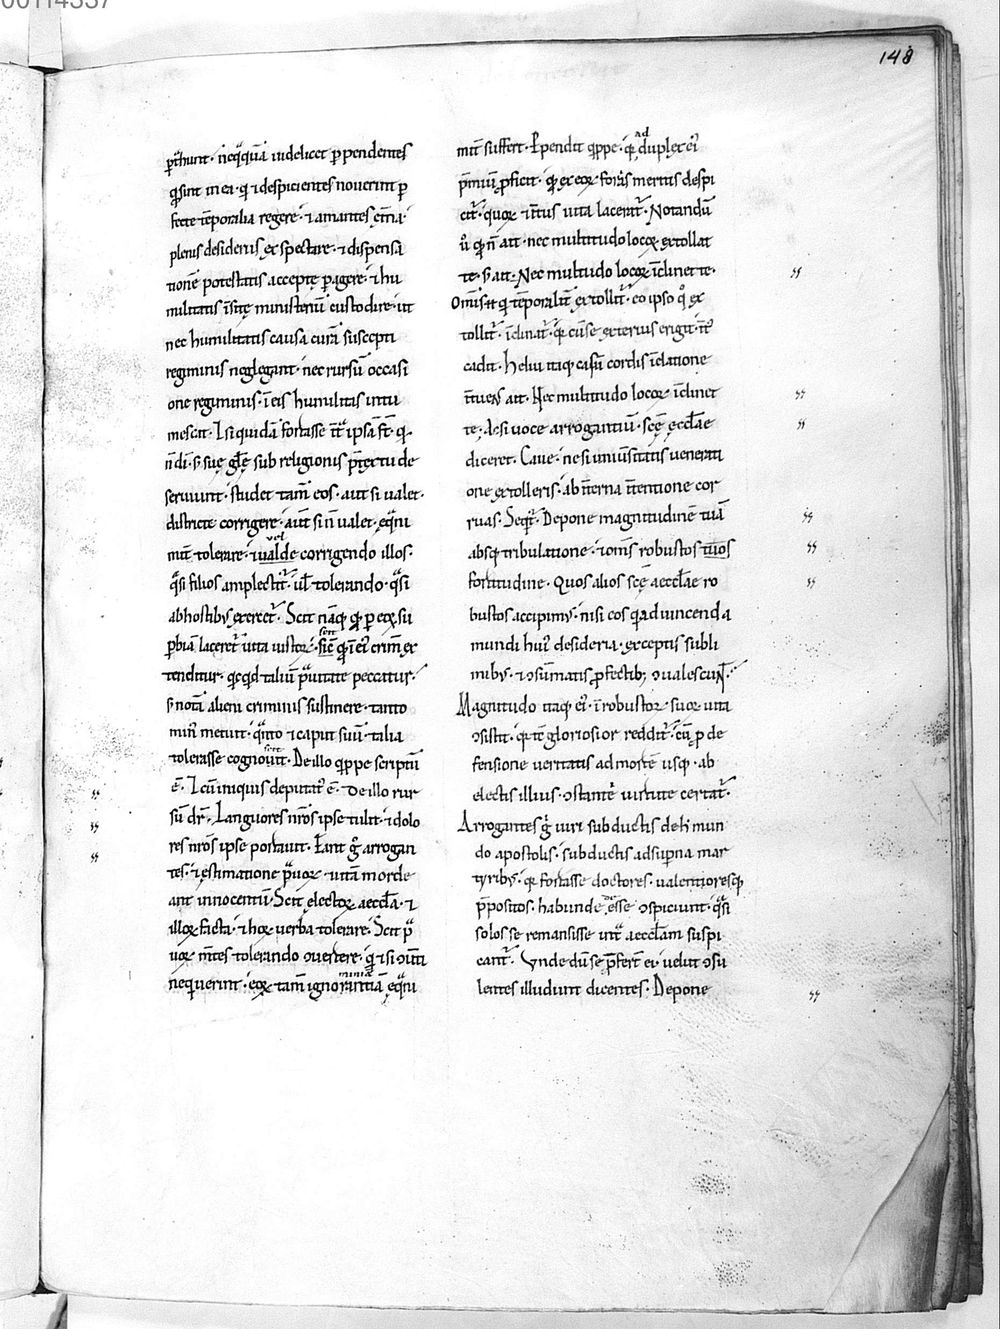 00114337
148
p̄trahunt · neq̄quā uidelicet ꝑpendentes
q̄ sint in ea · q̄ ⁊ despicientes nouerint ꝑ
fecte tēporalia regere · ⁊ amantes et̄na ·
plenis desideriis exspectare · ⁊ dispensa
tionē potestatis acceptę ꝑagere · ⁊ hu
militatis īsitę ministeriū custodire · ut
nec humilitatis causa curā suscepti
regiminis neglegant · nec rursū occasi
one regiminis · ī eis humilitas intu
mescat · ⁊ si quidā fortasse
n̄ dī · s; suę gl̄ę sub religionis p̄textu de
seruiunt · studet tam̄ eos · aut si ualet ·
districte corrigere · aut si n̄ ualet · eq̄ni
mit̄ tolerare · ⁊ ualde corrigendo illos ·
vel
q̄si filios amplectit̄ · ul̄ tolerando · q̄si
ab hostibꝰ exercet̄ · Scit nāq; qꝫ ꝑ eoꝝ su
ꝑbiā laceret̄ uita iustoꝝ ·
tenditur · q̄cq̄d taliū p̄uitate peccatur ·
s; notā alieni criminis sustinere · tanto
min̄ metuit · q̄nto ⁊ caput suū · talia
tolerasse cognouit · De illo q̄ppe scriptū
ē · ⁊ cū iniquis deputatꝰ ē · De illo rur
sū dr̄ · Languores nr̄os ipse tulit · ⁊ dolo
res nr̄os ipse portauit · Eant g̊ arrogan
tes · ⁊ ęstimatione p̄uoꝝ · uitā morde
ant innocentū · Scit electoꝝ aeccl̄a · ⁊
illoꝝ facta · ⁊ hoꝝ uerba tolerare · Scit p̄
uoꝝ m̄tes tolerando ↄuertere · q̄ ⁊ si ↄūti
nequerint · eoꝝ tam̄ ignorantiā eq̄ni
mit̄ suffert · Ꝑpendit q̄ppe · qꝫ ad duplex ei
p̄miū ꝓficit · qꝫ ex eoꝝ foras meritis despi
cit̄ · quoꝝ ⁊ ītus uita lacerat̄ · Notandū
ū qꝫ n̄ ait · nec multitudo locoꝝ extollat
te · s; ait · Nec multitudo locoꝝ īclinet te ·
Omīs q̄ tēporalit̄ extollit̄ · eo ipso qͦ ex
tollit̄ · īclinat̄ · qꝫ cū se exterius erigit · īt̄ꝰ
cadit · Heliu itaq; casū cordis ī elatione
īntuens ait · Nec multitudo locoꝝ īclinet
te · Ac si uoce arrogantiū · scę eccl̄ae
diceret · Caue · ne si uniūsitatis uenerati
one extolleris · ab īnterna īntentione cor
ruas · Seq̄r · Depone magnitudinē tuā
absq; tribulatione · ⁊ omīs robustos tuos
fortitudine · Quos alios scę aeccl̄ae ro
bustos accipimꝰ · nisi eos q̄ ad uincenda
mundi huiꝰ desideria · exceptis subli
mibꝰ · ⁊ ↄsūmatis ꝓfectibꝫ ↄualescunt ·
Magnitudo itaq; eiꝰ · ī robustoꝝ suoꝝ uita
ↄsistit · q̄ tc̄ gloriosior reddit̄ · cū ꝓ de
fensione ueritatis ad mortē usq; · ab
electis illius · ↄstante uirtute certat̄ ·
Arrogantes g̊ uiri subductis de h̄ mun
do apostolis · subductis ad suꝑna mar
tyribꝰ · q̄ fortasse doctores · ualentioresq;
p̄positos · habunde esse ↄspiciunt · q̄si
solos se remansisse int̄ aeccl̄am suspi
cant̄ · Vnde dū se p̄fert ei · uelut ↄsu
lentes illudunt dicentes · Depone